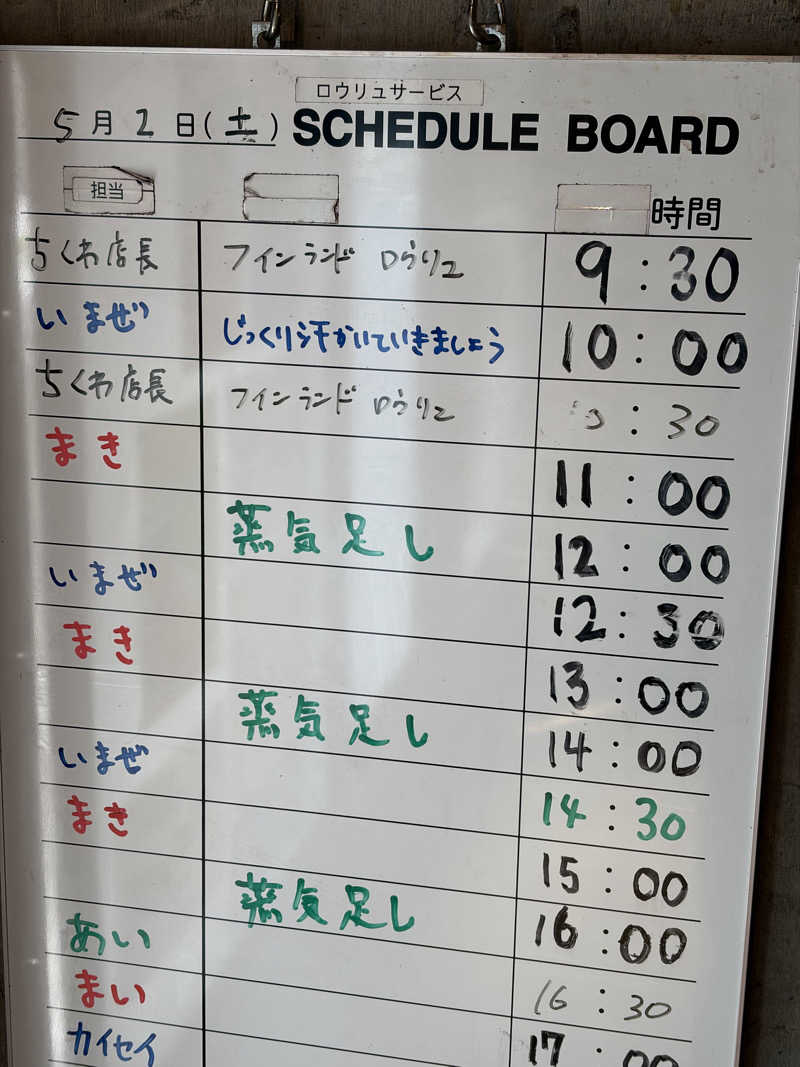 ロウリュサービス
5月2日(土) SCHEDULE BOARD
担当 時間
ちくわ店長 フィンランド ロウリュ 9:30
いまぜ じっくり汗かいていきましょう 10:00
ちくわ店長 フィンランド ロウリュ :30
まき 11:00
蒸気足し 12:00
いまぜ 12:30
まき 13:00
蒸気足し 14:00
いまぜ 14:30
まき 15:00
蒸気足し 16:00
あい 16:30
まい 17:00
カイセイ